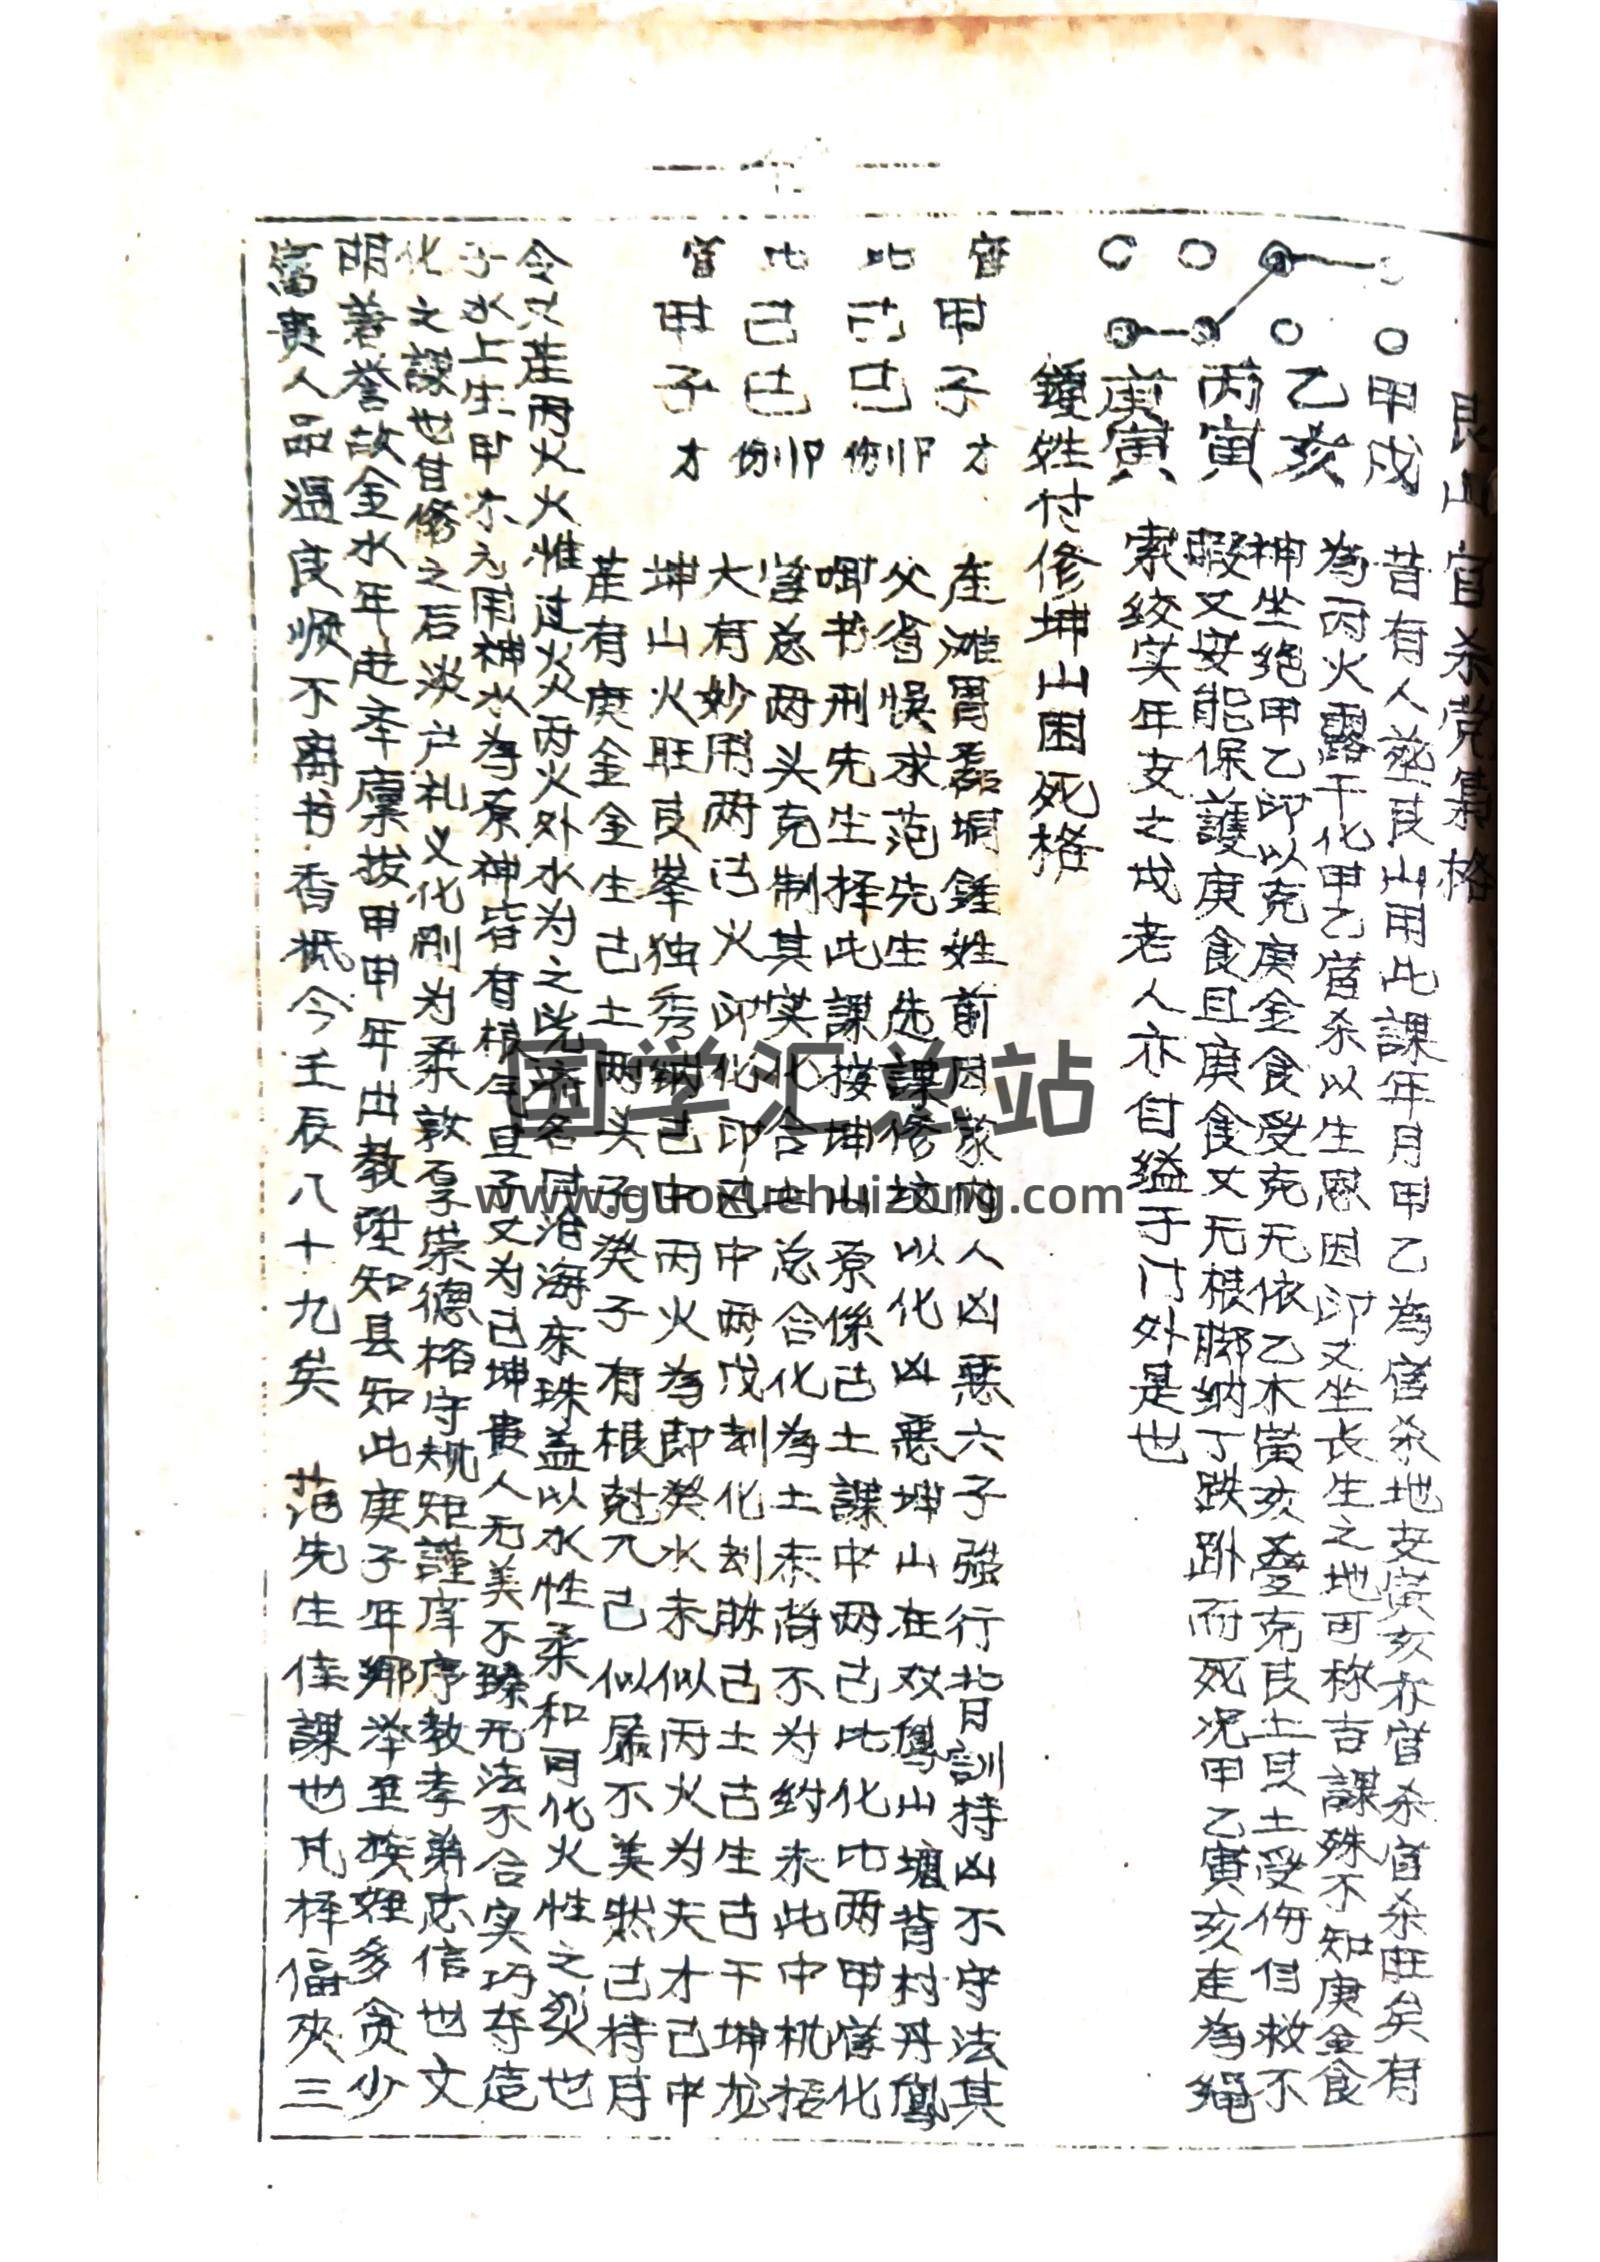 艮山官杀党集格
甲戌
乙亥
丙寅
庚寅
昔有人葬艮山用此課年月甲乙為官杀地支寅亥亦官杀官杀旺矣有
為丙火露干化甲乙官杀以生恩因印又坐長生之地可称吉課殊不知庚金食
神坐绝甲乙印以克庚金食受克无依乙木寅亥叠克艮土艮土受伤自救不
暇又安能保護庚食且庚食又无根脚纳丁跌卧而死况甲乙寅亥産為繩
索绞实年支之戌老人亦自缢于门外是也
鍾姓付修坤山困死格
官甲子才
比己巳伤卩
比己巳伤卩
官甲子才
産滩胃磊垌鍾姓前因蒙内人凶惡六子强行昔日訓持凶不守法其
父省悞求范先生选課修坟以化凶惡坤山在双鳳山壠背村丹鳳
啣书刑先生择此課接坤山原係己土課中两己比化比两甲官化
官总两头克制其实化合土总合化為土未尚不为約未此中机括
大有妙用两巳火卩化印巳中两戊刦化刦助己土己生己干坤龙
坤山火旺艮峯独秀纳己中丙火為即癸水未似丙火为夫才己中
產有庚金金生己土两头子癸子有根尅兀己似屬不美然己持月
令又產丙火火惟过炎丙火外水为之 济名 沧海家珠盖以水性柔和可化火性之烈也
子水上生甲木元用神水為原神皆有根气且子又为己坤貴人无美不臻无法不合实巧夺造
化之課也自修之后淡户礼义化刚为柔敦厚崇德格守规矩謹庠序教孝弟忠信也文
明著誉故金水年赴奉廩拔甲甲年出教 知县知此庚子年郷举至族姪多贪少
富貴人品温良顺不离书香柢今壬辰八十九矣 范先生佳課也凡择偪夾三
国学汇总站
www.guoxuehuizong.com